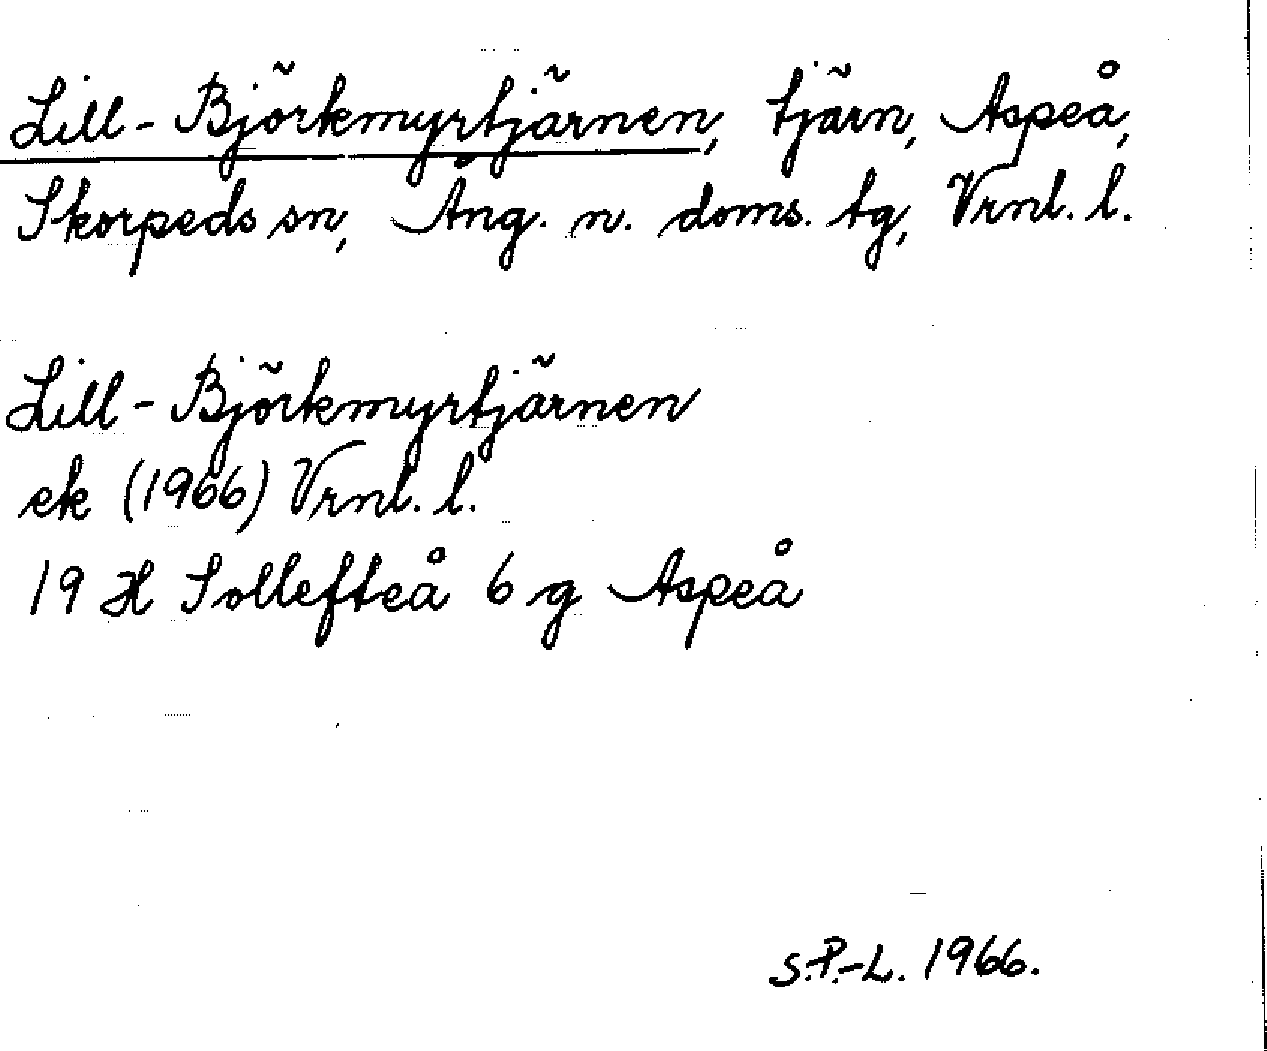 Lill-Björkmyrtjärnen, tjärn, Aspeå,
Skorpeds sn, Ång. n. doms. tg, Vrnl. l.
Lill-Björkmyrtjärnen
ek (1966) Vrnl. l.
19 H Sollefteå 6 g Aspeå
S.P.-L. 1966.